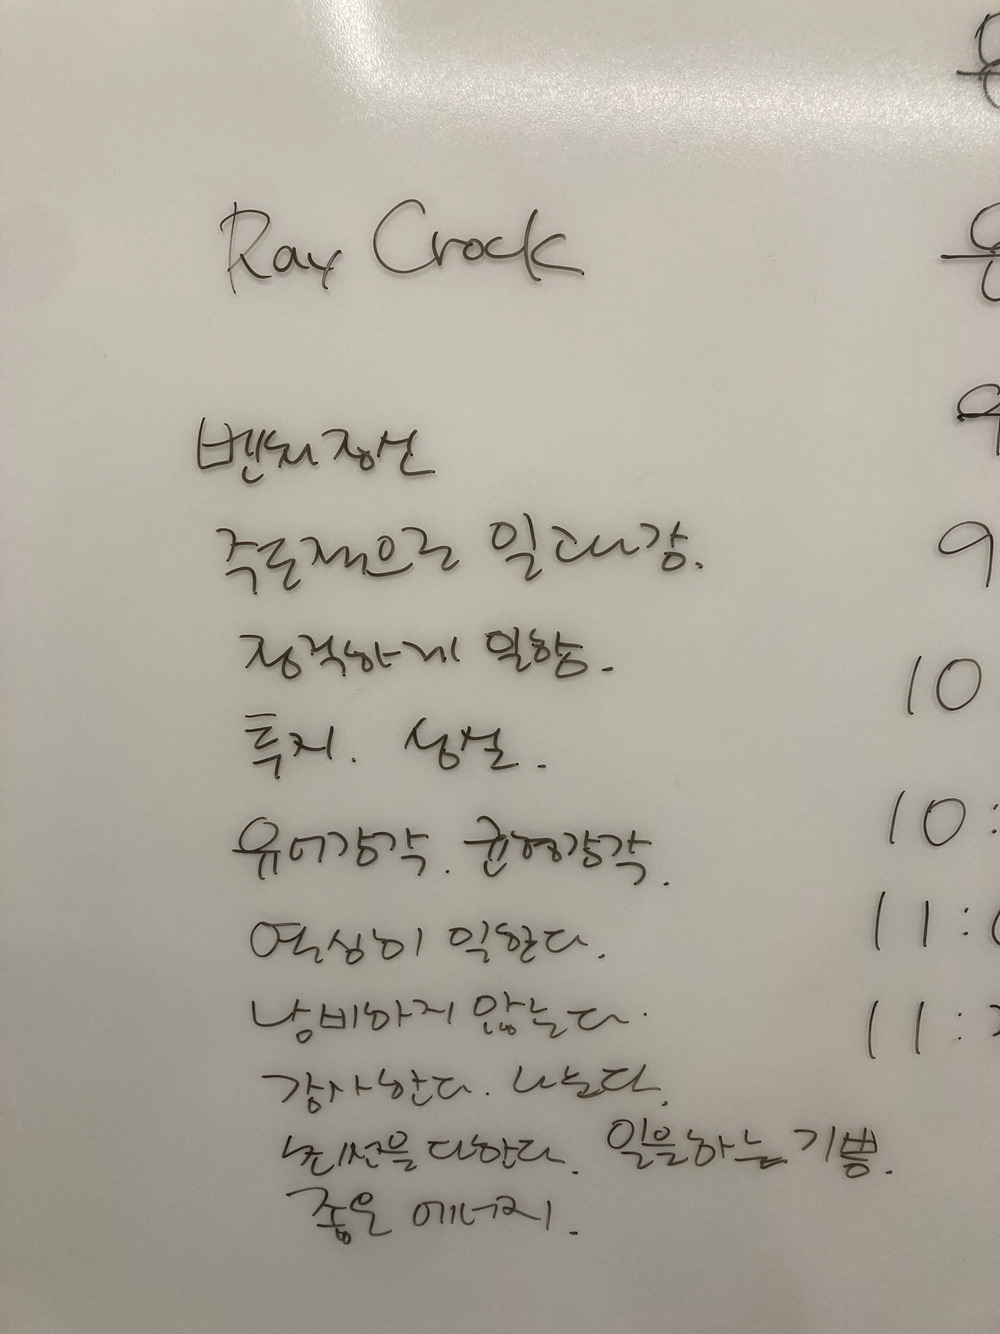 Ray Crock
벤처정신
주도적으로 일해나감.
정직하게 일함.
투지. 성실.
유머감각. 균형감각.
열심히 일한다.
낭비하지 않는다.
감사한다. 나눈다.
최선을 다한다. 일을하는 기쁨.
좋은 에너지.
9
10
10:
11:
11: